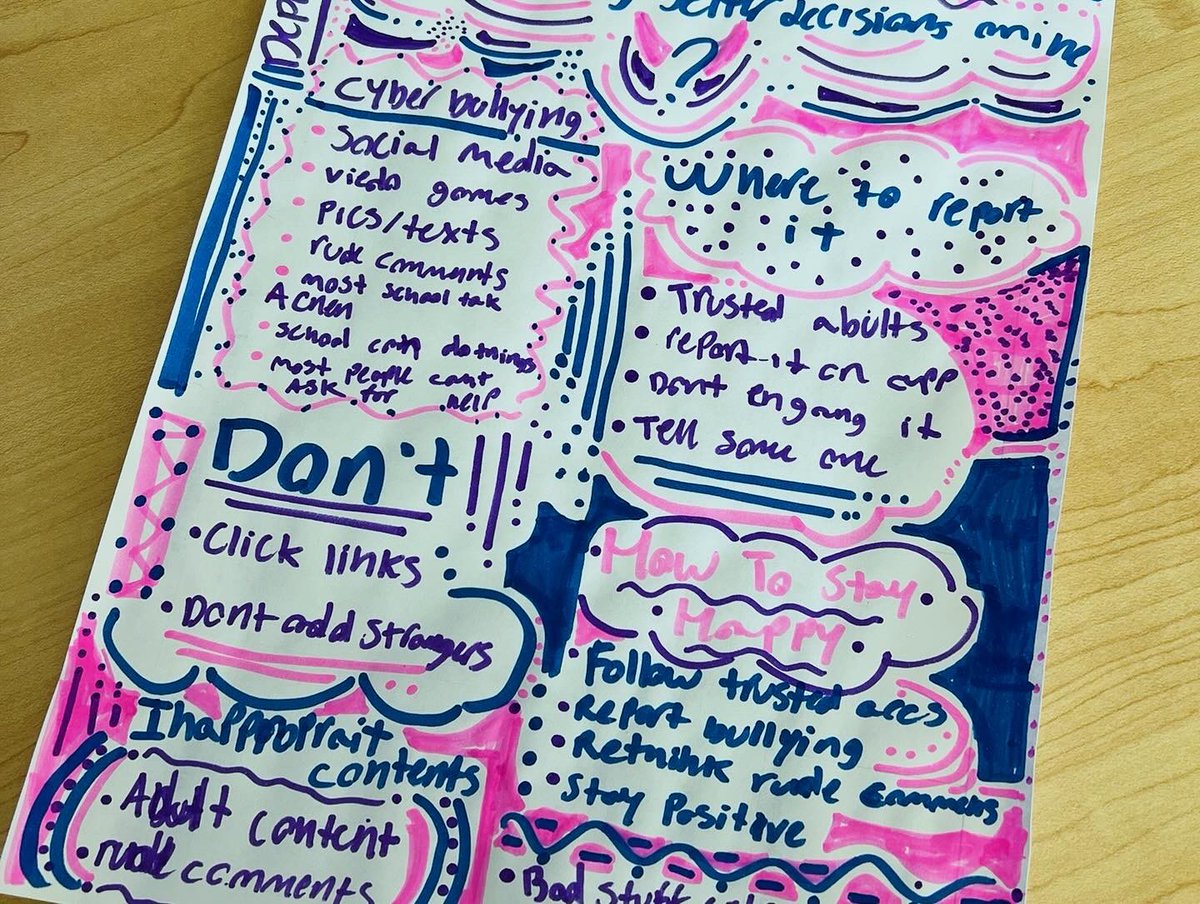 Dep
better decisions online
?
Cyber bullying
Social media
viedo games
Pics/texts
rude comments
most school talk
school
most people cant
ASK for help
Where to report
it
Trusted abults
report it on app
Dont engang it
Tell some one
Don't
Click links
Dont add strangers
How To Stay
Happy
Follow trusted accs
Report bullying
Rethink rude comments
Stay Positive
Inapproprait
contents
Adult content
rude comments
Bad stuff